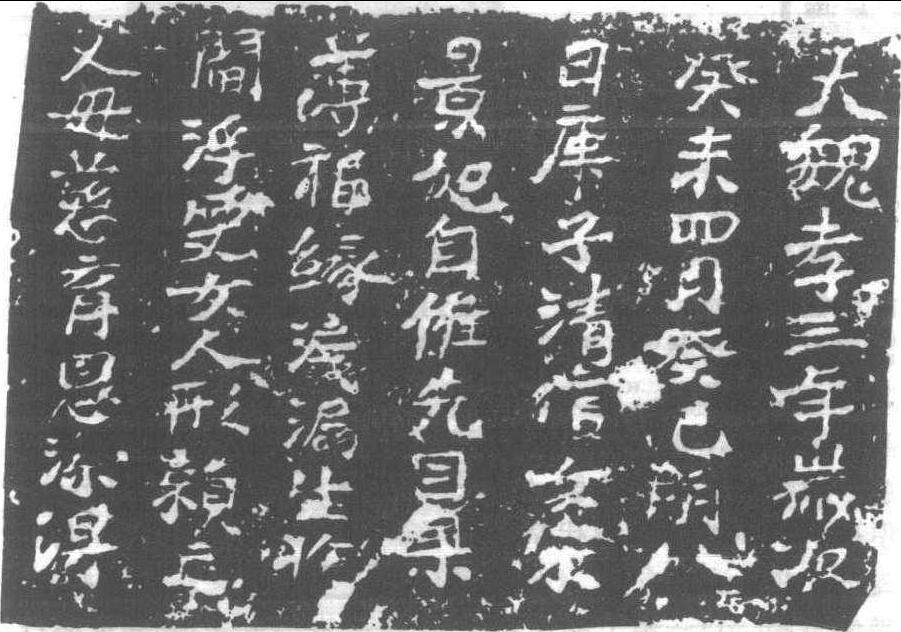 大魏孝昌三年歲次
癸未四月癸巳朔八
日庚子清信女宋
景妃自惟先因果
薄福緣淺漏生於
閻浮受女人形賴亡
父母慈育恩深得